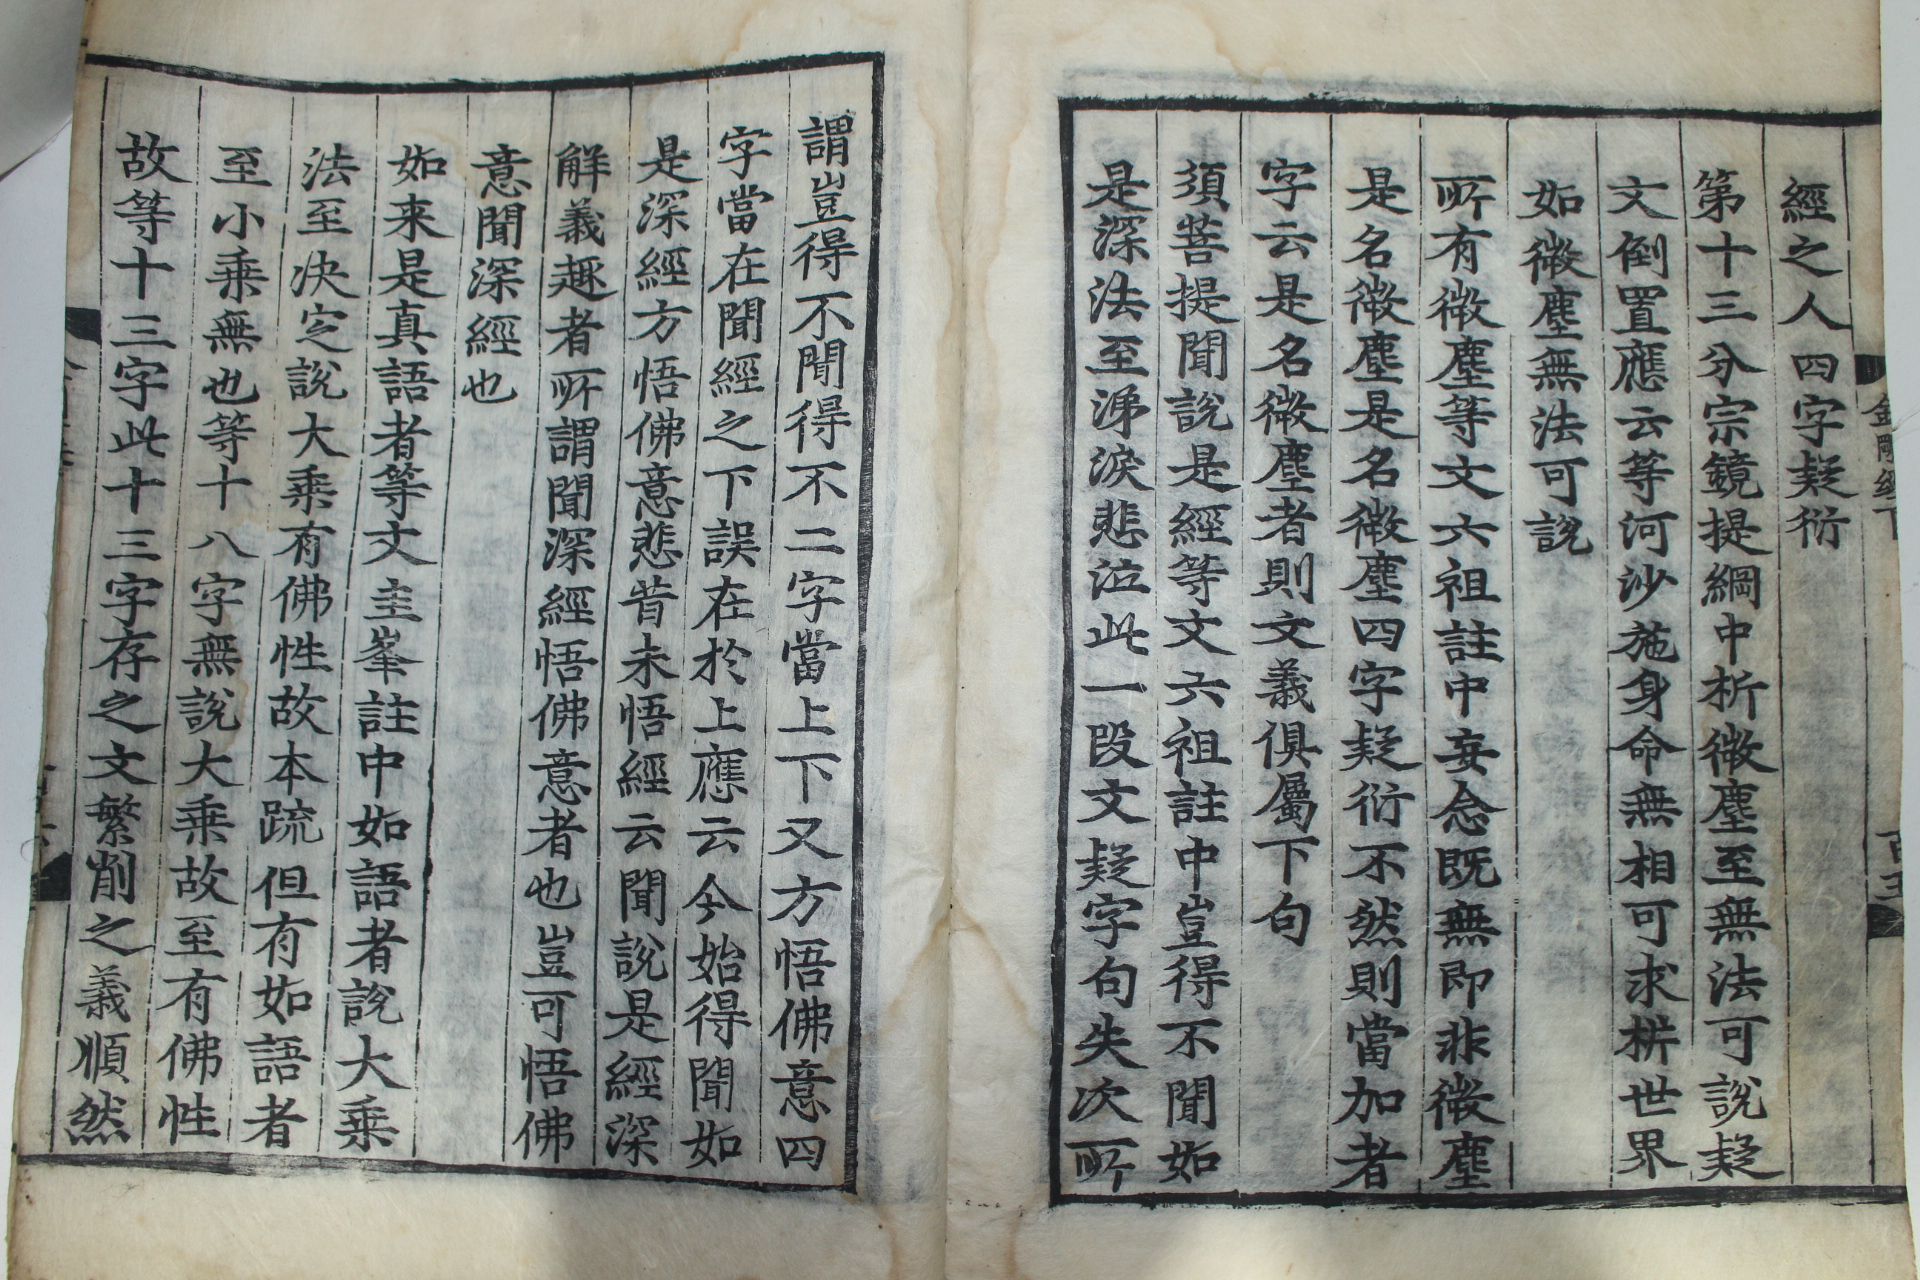 經之人四字疑衍
第十三分宗鏡提綱中析微塵至無法可說疑
文倒置應云等河沙施身命無相可求析世界
如微塵無法可說
所有微塵等文六祖註中妄念既無即非微塵
是名微塵是名微塵四字疑衍不然則當加者
字云是名微塵者則文義俱屬下句
須菩提聞說是經等文六祖註中豈得不聞如
是深法至涕淚悲泣此一段文疑字句失次所
謂豈得不聞得不二字當上下又方悟佛意四
字當在聞經之下誤在於上應云今始得聞如
是深經方悟佛意悲昔未悟經云聞說是經深
解義趣者所謂聞深經悟佛意者也豈可悟佛
意聞深經也
如来是真語者等文圭峯註中如語者說大乘
法至决定說大乘有佛性故本疏但有如語者
至小乘無也等十八字無說大乘故至有佛性
故等十三字此十三字存之文繁削之義順然
金剛經下